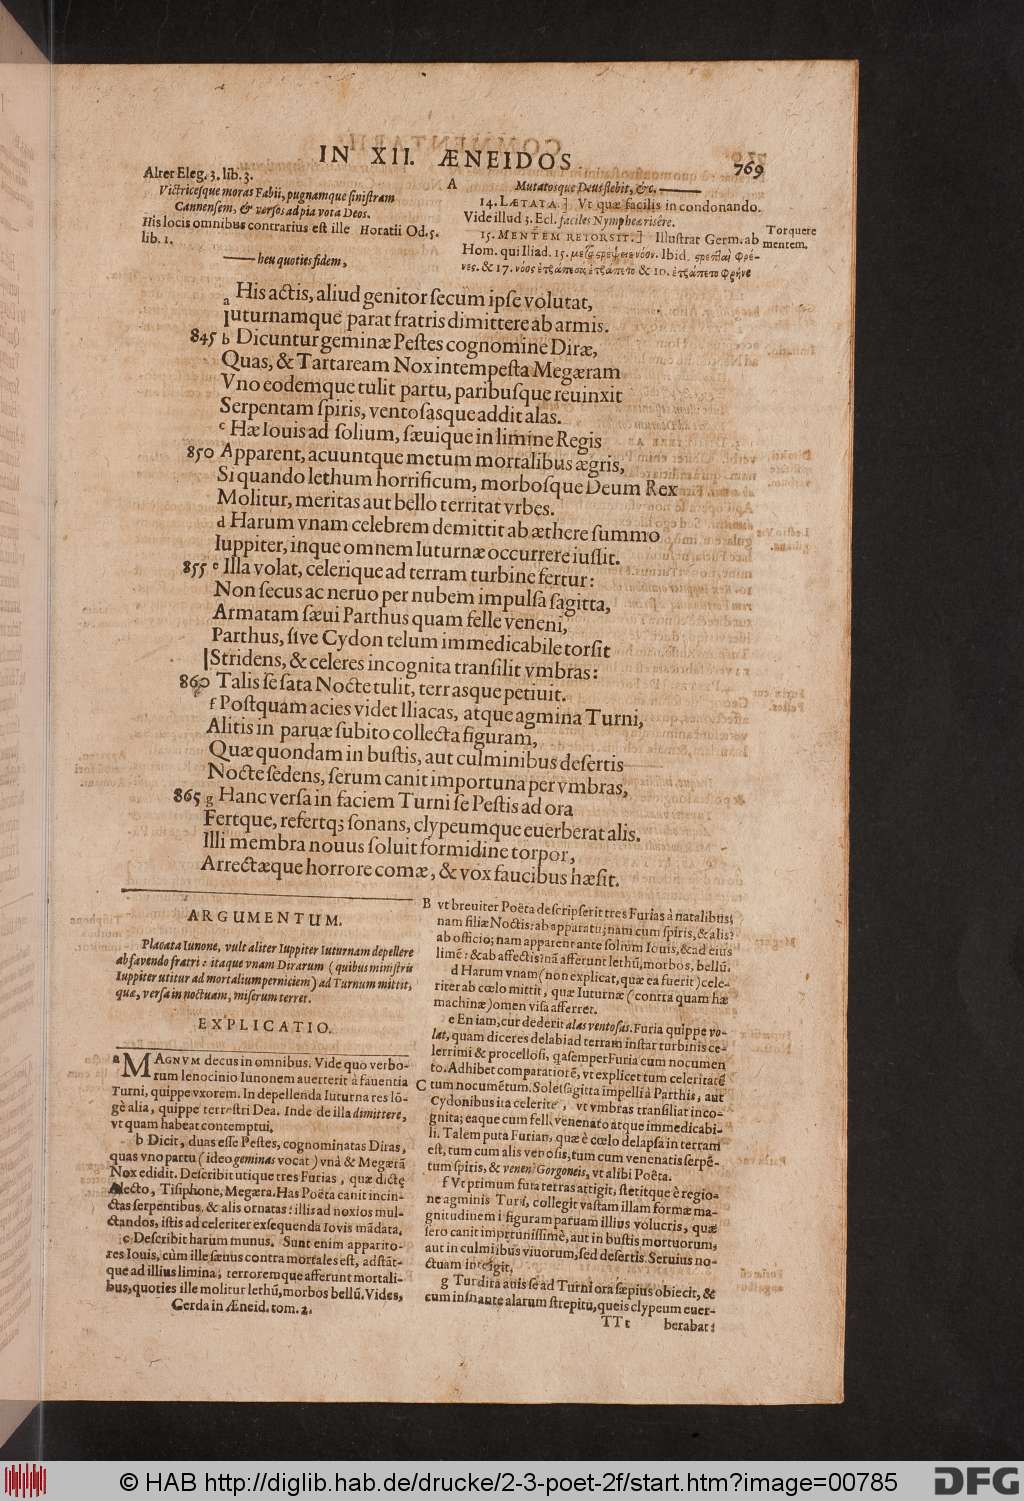 IN XII. ÆNEIDOS
769
Alter Eleg. 3. lib. 3.
Victricesque moras Fabii, pugnamque sinistram
Cannensem, & versos ad pia vota Deos.
His locis omnibus contrarius est ille Horatii Od. 5.
lib. 1.
—— heu quoties fidem,
A
Mutatosque Deus flebit, &c. ——
14. LÆTATA.] Vt quæ facilis in condonando.
Vide illud 3. Ecl. faciles Nymphæ risêre.
15. MENTEM RETORSIT.] Illustrat Germ. ab
Hom. qui Iliad. 15.
Ibid.
& 17.
& 10.
Torquere
mentem.
a His actis, aliud genitor secum ipse volutat,
Iuturnamque parat fratris dimittere ab armis.
845 b Dicuntur geminæ Pestes cognomine Diræ,
Quas, & Tartaream Nox intempesta Megæram
Vno eodemque tulit partu, paribusque reuinxit
Serpentam spiris, ventosasque addit alas.
c Hæ Iouis ad solium, sæuique in limine Regis
850 Apparent, acuuntque metum mortalibus ægris,
Si quando lethum horrificum, morbosque Deum Rex
Molitur, meritas aut bello territat vrbes.
d Harum vnam celebrem demittit ab æthere summo
Iuppiter, inque omnem Iuturnæ occurrere iussit.
855 e Illa volat, celerique ad terram turbine fertur:
Non secus ac neruo per nubem impulsa sagitta,
Armatam sæui Parthus quam felle veneni,
Parthus, sive Cydon telum immedicabile torsit
Stridens, & celeres incognita transilit vmbras:
860 Talis se sata Nocte tulit, terrasque petiuit.
f Postquam acies videt Iliacas, atque agmina Turni,
Alitis in paruæ subito collecta figuram,
Quæ quondam in bustis, aut culminibus desertis
Nocte sedens, serum canit importuna per vmbras,
865 g Hanc versa in faciem Turni se Pestis ad ora
Fertque, refertq; sonans, clypeumque euerberat alis.
Illi membra nouus soluit formidine torpor,
Arrectæque horrore comæ, & vox faucibus hæsit.
ARGUMENTUM.
Placata Iunone, vult aliter Iuppiter Iuturnam depellere
ab favendo fratri: itaque vnam Dirarum (quibus ministris
Iuppiter utitur ad mortalium perniciem) ad Turnum mittit,
quæ, versa in noctuam, miserum terret.
EXPLICATIO.
a MAGNVM decus in omnibus. Vide quo verbo-
rum lenocinio Iunonem auerterit à fauentia
Turni, quippe vxorem. In depellenda Iuturna res lõ-
gè alia, quippe terrestri Dea. Inde de illa dimittere,
vt quam habeat contemptui.
b Dicit, duas esse Pestes, cognominatas Diras,
quas vno partu (ideo geminas vocat) vnà & Megærã
Nox edidit. Describit utique tres Furias, quæ dictę
Alecto, Tisiphone, Megæra. Has Poëta canit incin-
ctas serpentibus, & alis ornatas: illis ad noxios mul-
ctandos, istis ad celeriter exsequenda Iovis mãdata.
c Describit harum munus. Sunt enim apparito-
res Iouis, cùm ille sæuus contra mortales est, adstãt-
que ad illius limina, terroremque afferunt mortali-
bus, quoties ille molitur lethũ, morbos bellũ. Vides,
Cerda in Æneid. tom. 2.
B vt breuiter Poëta descripserit tres Furias à natalibus;
nam filiæ Noctis: ab apparatu; nam cum spiris, & alis:
ab officio; nam apparent ante solium Iouis, & ad eius
limẽ: & ab affectis: nã afferunt lethũ, morbos, bellũ.
d Harum vnam (non explicat, quæ ea fuerit) cele-
riter ab cœlo mittit, quæ Iuturnæ (contra quam hæ
machinæ) omen visa afferret.
e En iam, cur dederit alas ventosas. Furia quippe vo-
lat, quam diceres delabi ad terram instar turbinis ce-
lerrimi & procellosi, qa semper Furia cum nocumen
to. Adhibet comparationẽ, vt explicet tum celeritatẽ
C tum nocumẽtum. Solet sagitta impelli à Parthis, aut
Cydonibus ita celeritè, vt vmbras transiliat inco-
gnita; eaque cum fell. venenato atque immedicabi-
li. Talem puta Furiam, quæ è cœlo delapsa in terram
est, tum cum alis vetosis, tum cum venenatis serpẽ-
tum spiris, & venen. Gorgoneis, vt alibi Poëta.
f Vt primum futa terras attigit, stetitque è regio-
ne agminis Turi, collegit vastam illam formæ ma-
gnitudinem i figuram paruam illius volucris, quæ
sero canit imprtunissimè, aut in bustis mortuorum,
aut in culmiibus viuorum, sed desertis. Seruius no-
ctuam intęgit,
g Tur dira auis se ad Turni ora sæpius obiecit, &
cum insnante alarum strepitu, queis clypeum euer-
TTt
berabat:
© HAB http://diglib.hab.de/drucke/2-3-poet-2f/start.htm?image=00785
DFG